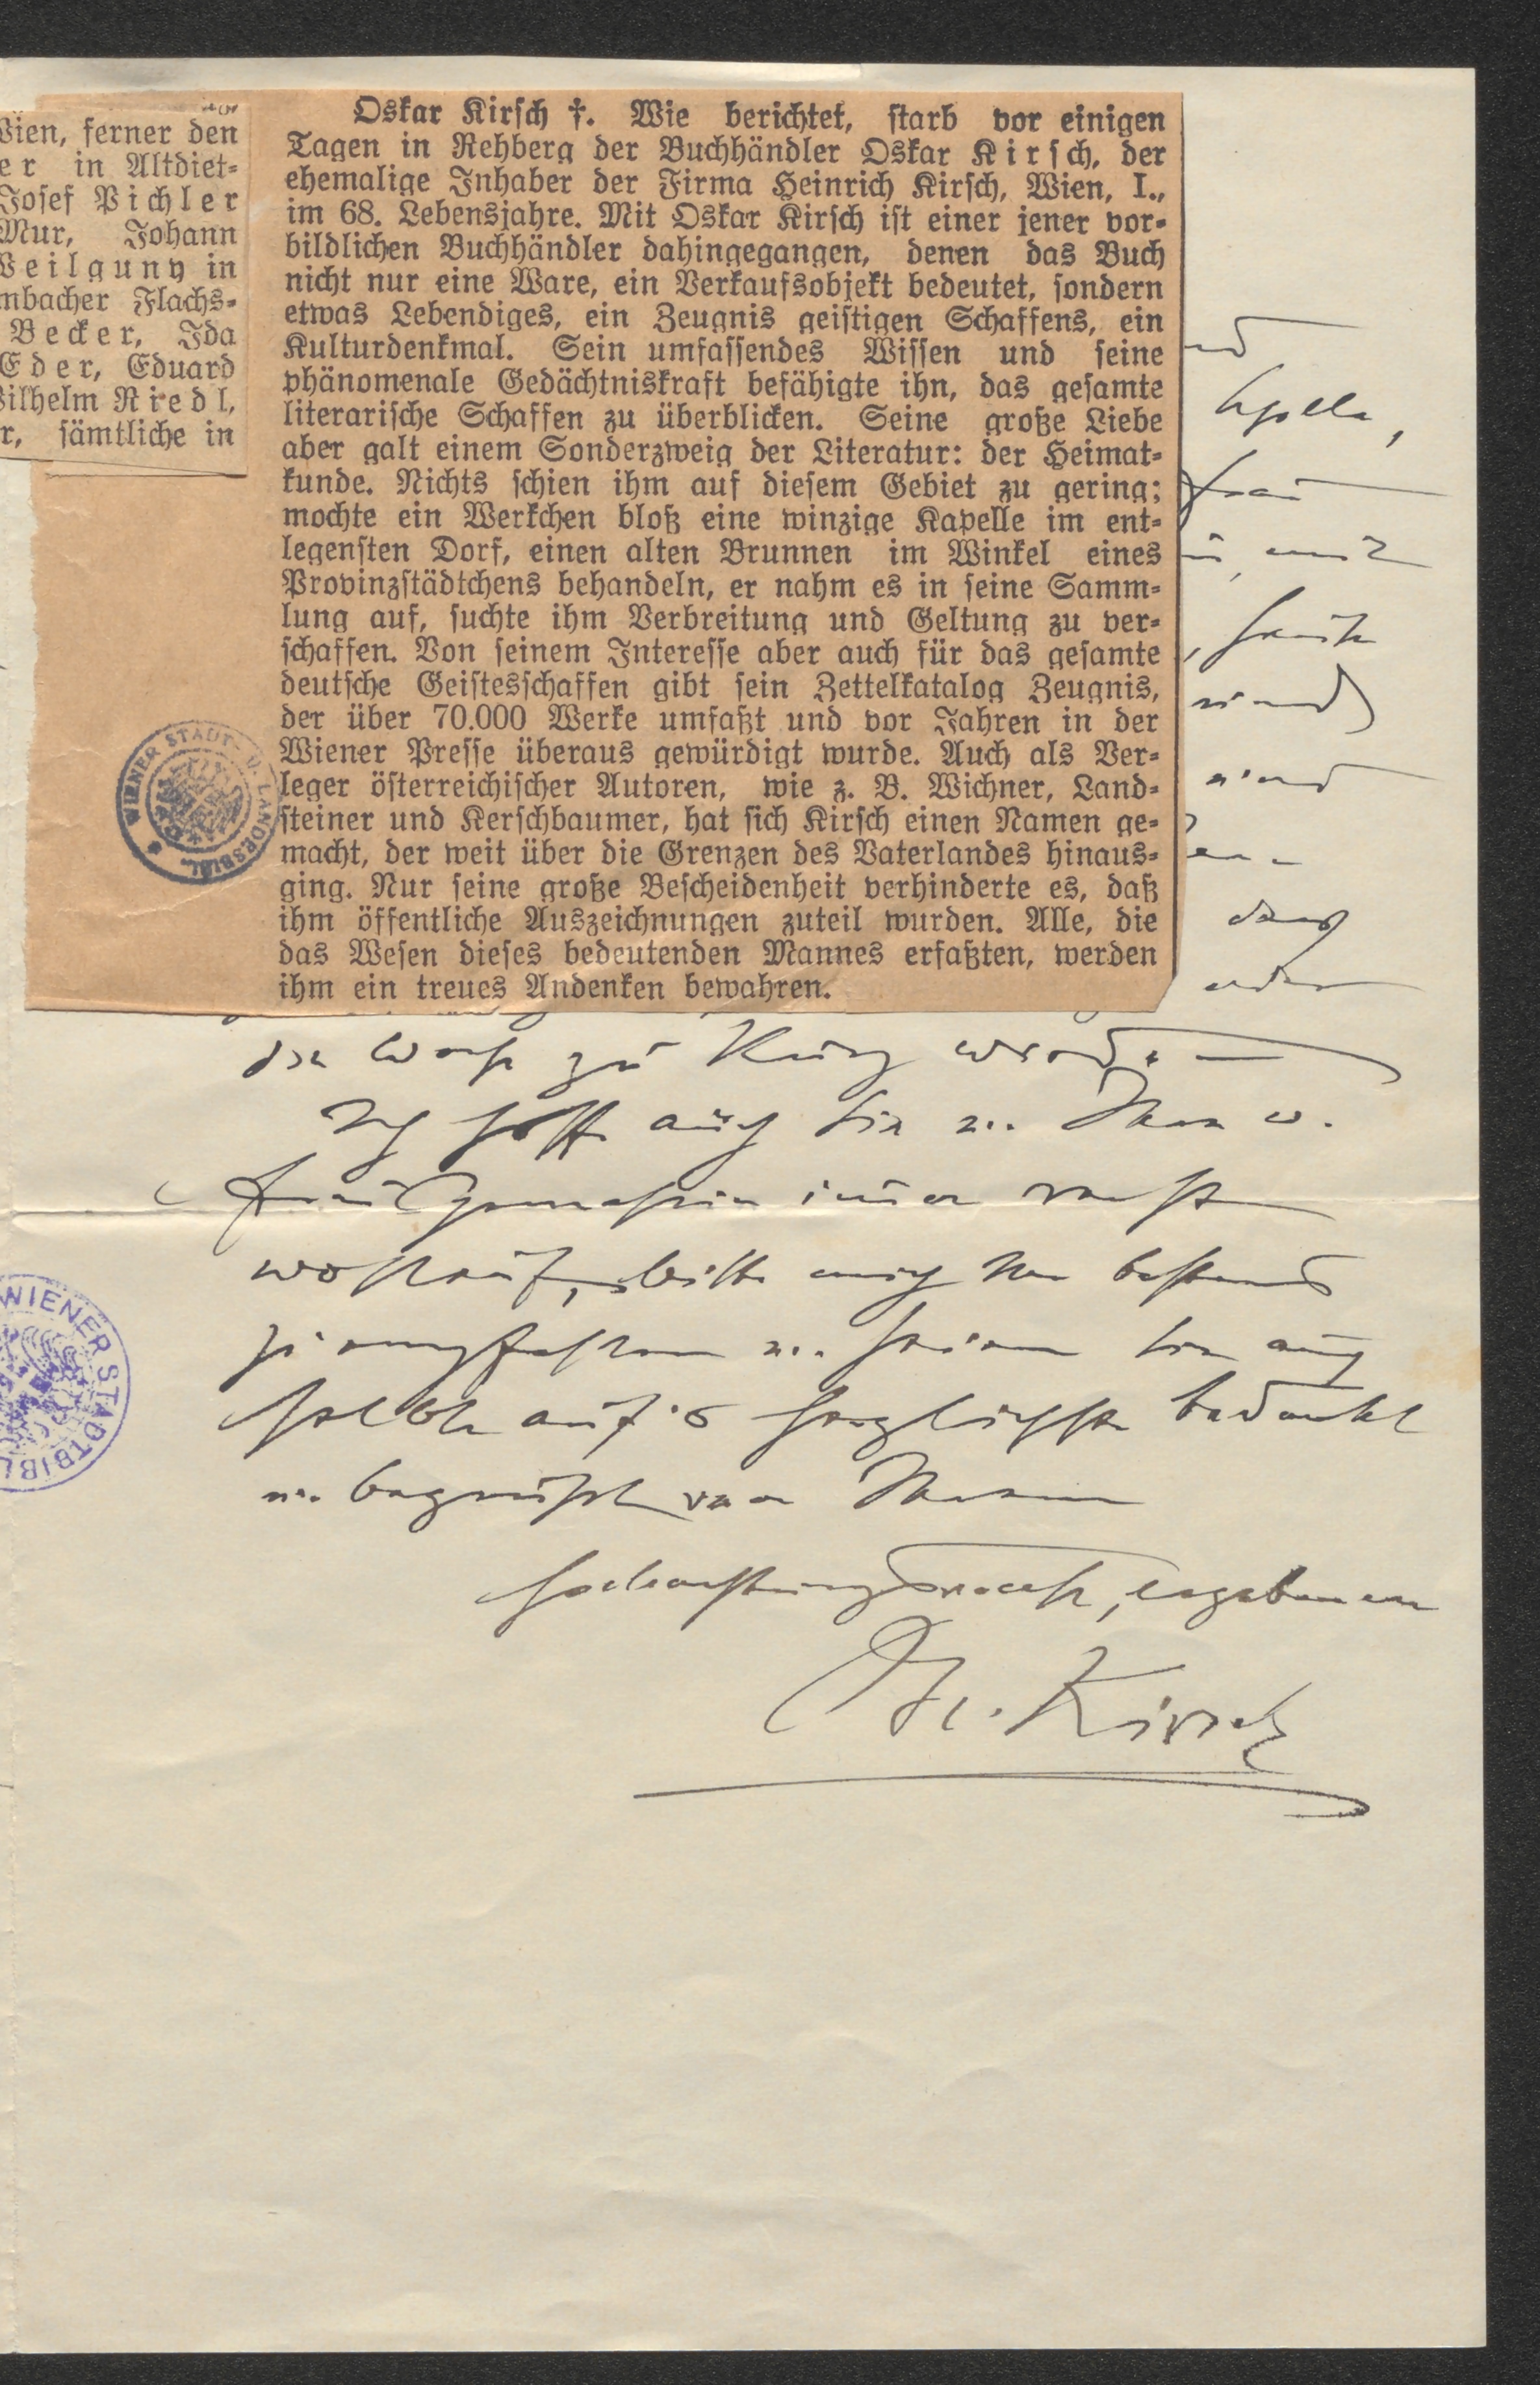 Wien, ferner den
er in Altdiet-
Josef Pichler
Mur, Johann
Weilguny in
mbacher Flachs-
Becker, Ida
Eder, Eduard
Wilhelm Riedl,
r, sämtliche in
Oskar Kirsch †. Wie berichtet, starb vor einigen
Tagen in Rehberg der Buchhändler Oskar Kirsch, der
ehemalige Inhaber der Firma Heinrich Kirsch, Wien, I.,
im 68. Lebensjahre. Mit Oskar Kirsch ist einer jener vor-
bildlichen Buchhändler dahingegangen, denen das Buch
nicht nur eine Ware, ein Verkaufsobjekt bedeutet, sondern
etwas Lebendiges, ein Zeugnis geistigen Schaffens, ein
Kulturdenkmal. Sein umfassendes Wissen und seine
phänomenale Gedächtniskraft befähigte ihn, das gesamte
literarische Schaffen zu überblicken. Seine große Liebe
aber galt einem Sonderzweig der Literatur: der Heimat-
kunde. Nichts schien ihm auf diesem Gebiet zu gering;
mochte ein Werkchen bloß eine winzige Kapelle im ent-
legensten Dorf, einen alten Brunnen im Winkel eines
Provinzstädtchens behandeln, er nahm es in seine Samm-
lung auf, suchte ihm Verbreitung und Geltung zu ver-
schaffen. Von seinem Interesse aber auch für das gesamte
deutsche Geistesschaffen gibt sein Zettelkatalog Zeugnis,
der über 70.000 Werke umfaßt und vor Jahren in der
Wiener Presse überaus gewürdigt wurde. Auch als Ver-
leger österreichischer Autoren, wie z. B. Wichner, Land-
steiner und Kerschbaumer, hat sich Kirsch einen Namen ge-
macht, der weit über die Grenzen des Vaterlandes hinaus-
ging. Nur seine große Bescheidenheit verhinderte es, daß
ihm öffentliche Auszeichnungen zuteil wurden. Alle, die
das Wesen dieses bedeutenden Mannes erfaßten, werden
ihm ein treues Andenken bewahren.
WIENER STADT- U. LANDESBIBL.
oder
zu kurz
Ich hoffe auch Sie u.
Frau Gemahlin immer recht
wohlauf, bitte mich bestens
zu empfehlen u. seien Sie auch
selbst auf's herzlichste bedankt
u. begrüßt von Ihrem
hochachtungsvollst ergebenen
WIENER STADTBIBL
Kirsch